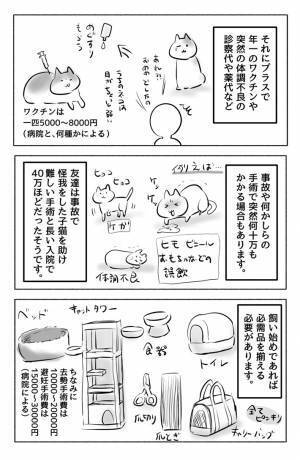 それにプラスで
年一のワクチンや
突然の体調不良の
診察代や薬代など
あれ!?
おめめどしたの
うちのネコは
目がよわい
めぐすり
もろたり
ワクチンは
一匹5000〜8000円
(病院と、何種かによる)
事故や何かしらの
手術で突然何十万も
かかる場合もあります。
例えば…
ヒモ ビニール
おもちゃなどの
誤飲
ヒョコ
ヒョコ
ケガ
体調不良
友達は事故で
怪我をした子猫を助け
難しい手術と長い入院で
40万ほどだったそうです。
飼い始めであれば
必需品を揃える
必要があります。
トイレ
食器
キャットタワー
ベッド
全て
ピンキリ
キャリーバッグ
爪とぎ
爪切り
ちなみに
去勢手術費は
10000〜20000円
避妊手術費は
15000〜30000円
(病院による)